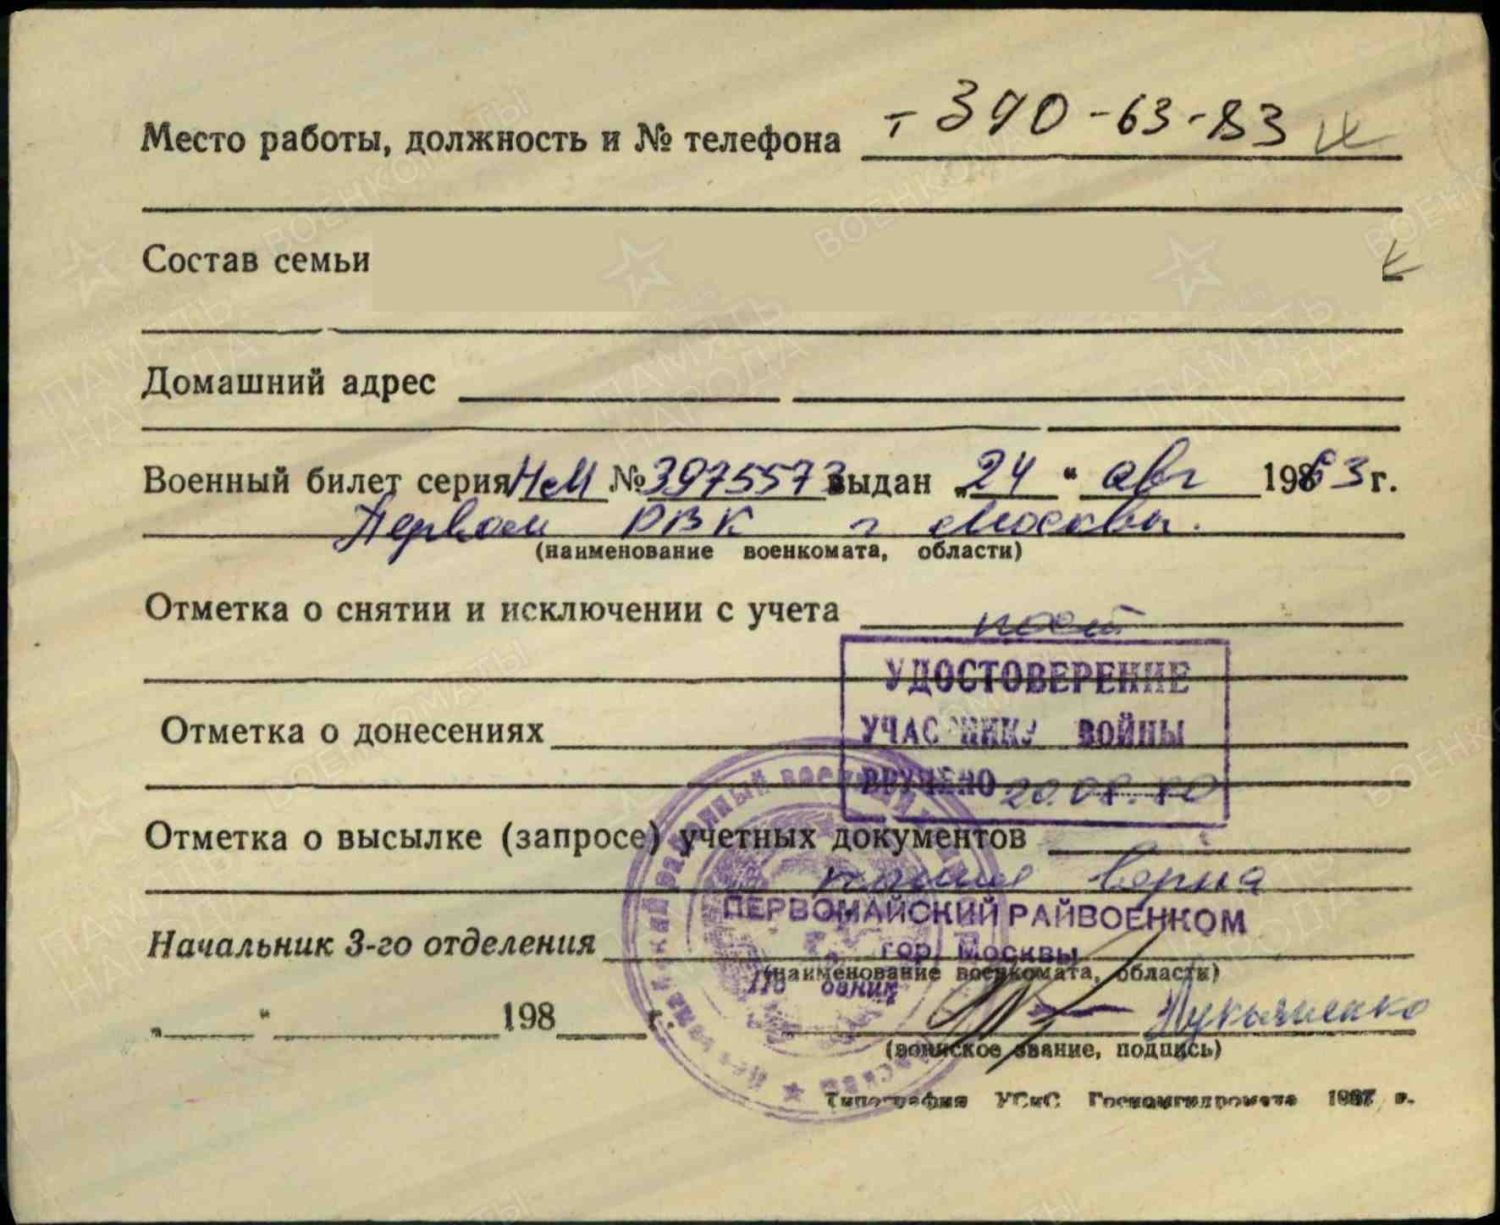 Место работы, должность и № телефона т 390-63-83
Состав семьи
Домашний адрес
Военный билет серия НМ № 3975573 выдан „24“ авг 1963 г.
Первом РВК г Москвы.
(наименование военкомата, области)
Отметка о снятии и исключении с учета
УДОСТОВЕРЕНИЕ
УЧАСТНИКУ ВОЙНЫ
Отметка о донесениях
ВРУЧЕНО 20.08.80
Отметка о высылке (запросе) учетных документов
копия верна
ПЕРВОМАЙСКИЙ РАЙВОЕНКОМ
Начальник 3-го отделения
гор. Москвы
(наименование военкомата, области)
„ “ 198 г.
Лукьяненко
(воинское звание, подпись)
Типография УСиС Госкомгидромета 1987 г.